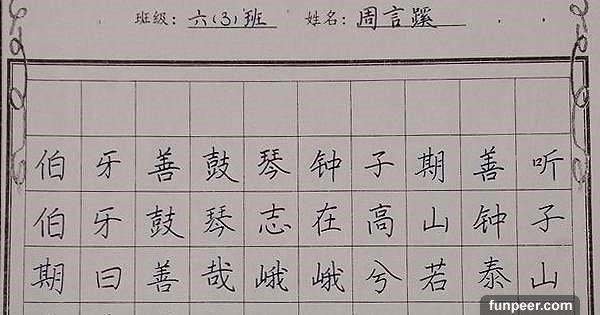 班级：六（3）班 姓名：周言蹊
伯牙善鼓琴钟子期善听
伯牙鼓琴志在高山钟子
期曰善哉峨峨兮若泰山
funpeer.com